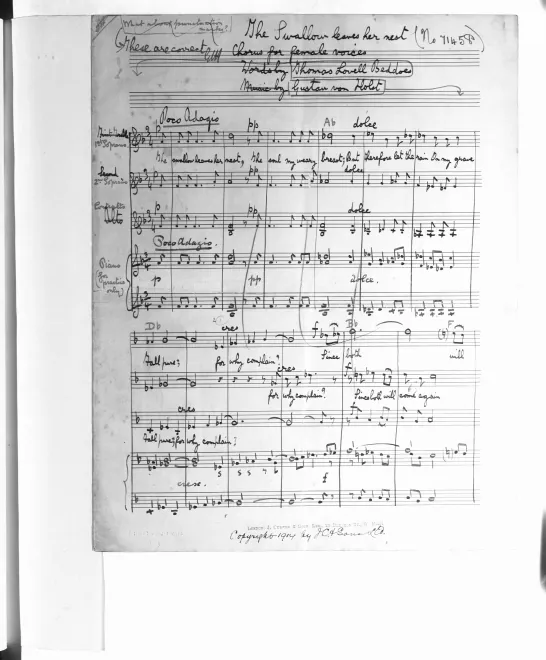 The Swallow leaves her nest (No 71458)
(These are correct)
Chorus for female voices
Words by Thomas Lovell Beddoes
Music by Gustav von Holst
Poco Adagio
p pp Ab dolce
Soprano
The swallow leaves her nest, The soul my weary breast; But therefore let the rain On my grave
p pp dolce
Second
2nd Soprano
Contralto
Alto
p pp dolce
Poco Adagio.
Piano
(for practice only)
p pp dolce.
Db cres f Bb F
Fall pure; for why complain? Since both will
cres f
for why complain? Since both will come again
cres f
Fall pure; for why complain?
cresc. f
Copyright 1914 by